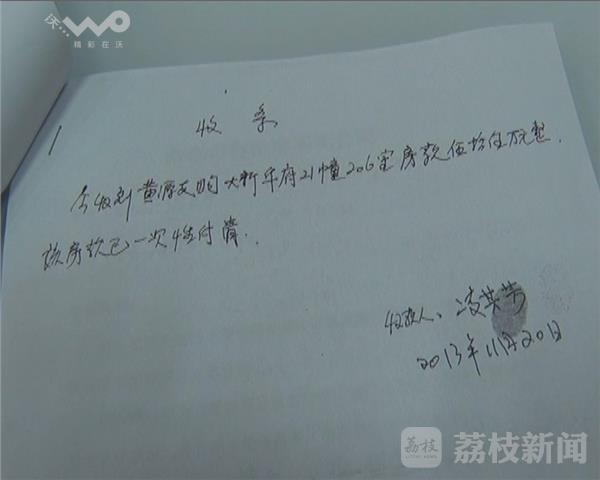 沃...
WO
精彩在沃
收条
今收到黄 购大新华府21幢206室房款伍拾伍万元整.
该房款已一次性付清.
收款人: 凌英芳
2013年11月20日
荔枝
LITCHI NEWS
荔枝新闻